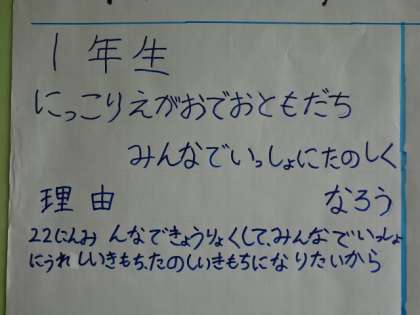 1年生
にっこりえがおでおともだち
みんなでいっしょにたのしく
理由 なろう
22にんみんなできょうりょくして、みんなでいっしょ
にうれしいきもち、たのしいきもちになりたいから